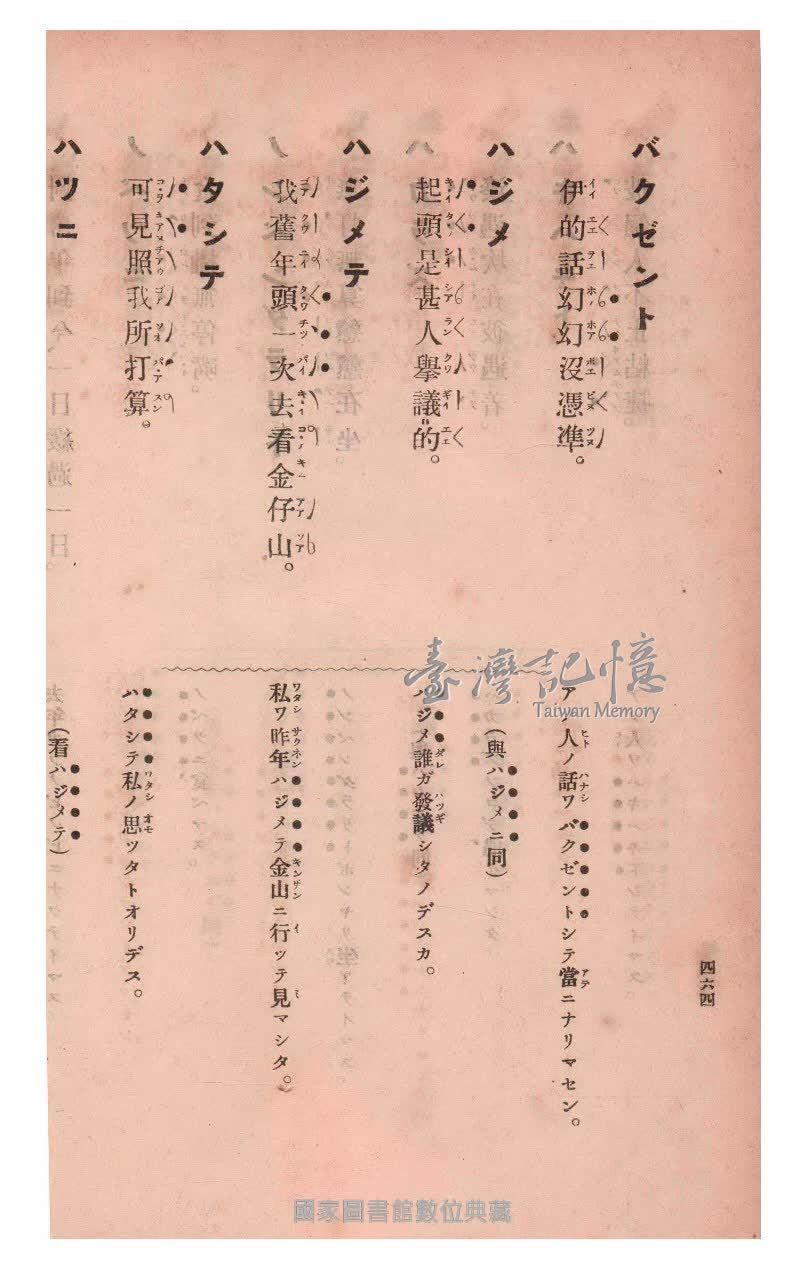 四六四
バクゼント
伊的話幻幻沒憑準。
アノ人ノ話ワバクゼントシテ當ニナリマセン。
ハジメ
(與ハジメニ同)
起頭是甚人擧議的。
ハジメ誰ガ發議シタノデスカ。
ハジメテ
我舊年頭一次去看金仔山。
私ワ昨年ハジメテ金山ニ行ッテ見マシタ。
ハタシテ
可見照我所打算。
ハタシテ私ノ思ツタトオリデス。
ハツニ
(看ハジメテ)
臺灣記憶
Taiwan Memory
國家圖書館數位典藏